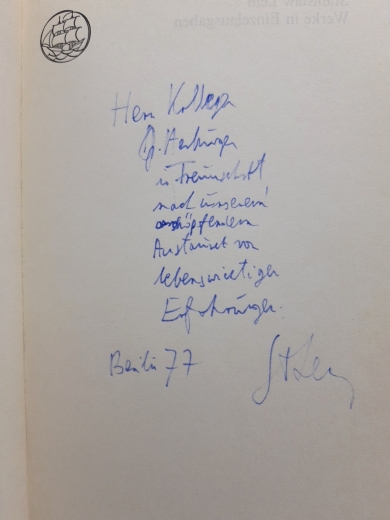 Stanisław Lem
Werke in Einzelausgaben
Herrn Kollegen
in Freundschaft
nach unserem
erschöpfendem
Austausch von
lebenswichtiger
Erfahrungen.
Berlin 77
St Lem